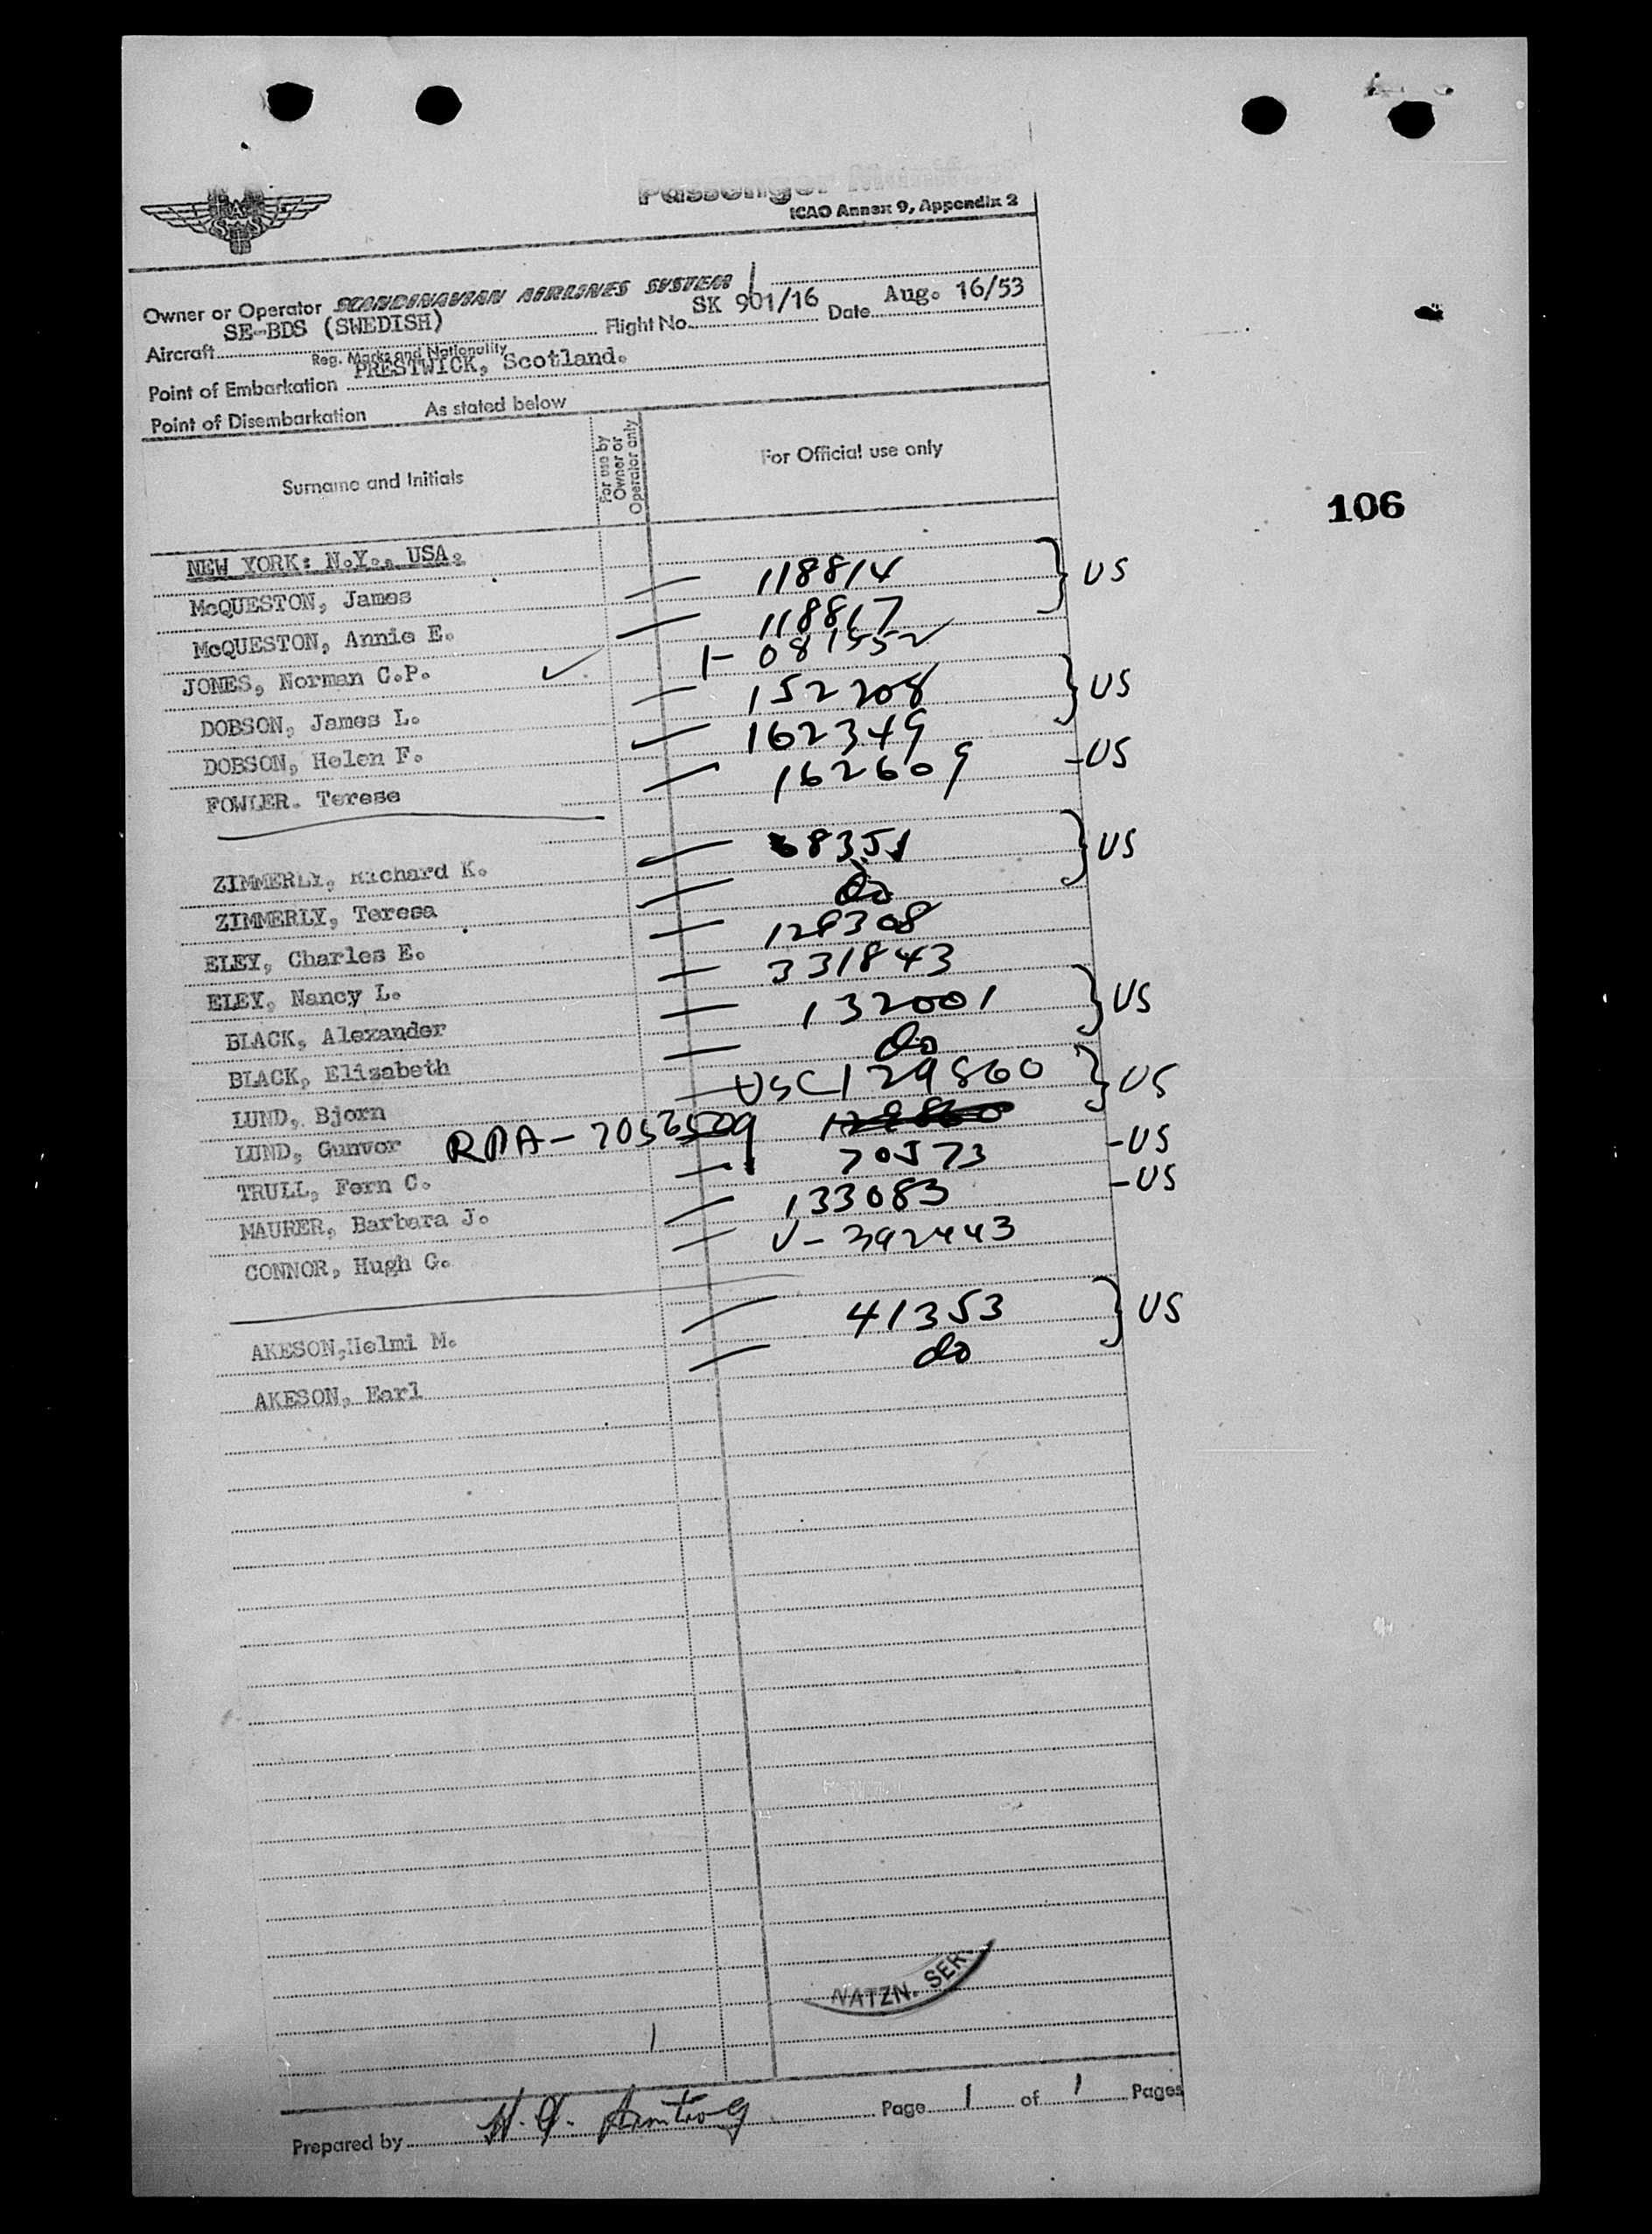 Passenger Manifest
ICAO Annex 9, Appendix 2
SAS
Owner or Operator SCANDINAVIAN AIRLINES SYSTEM
Aircraft SE-BDS (SWEDISH) Flight No. SK 901/16 Date Aug. 16/53
Reg. Marks and Nationality
Point of Embarkation PRESTWICK, Scotland.
Point of Disembarkation As stated below
Surname and Initials
For use by Owner or Operator only
For Official use only
106
NEW YORK: N.Y., USA.
McQUESTON, James — 118814 } US
McQUESTON, Annie E. — 118817
JONES, Norman C.P. ✓ I- 081552
DOBSON, James L. — 152208 } US
DOBSON, Helen F. — 162349
FOWLER. Terese — 162609 -US
ZIMMERLY, Richard K. — 68351 } US
ZIMMERLY, Teresa — do
ELEY, Charles E. — 128308
ELEY, Nancy L. — 331843
BLACK, Alexander — 132001 } US
BLACK, Elizabeth — do
LUND, Bjorn — USC 129860 } US
LUND, Gunvor
TRULL, Fern C. — 70573 -US
MAURER, Barbara J. — 133083 -US
CONNOR, Hugh G. — V-392443
AKESON,Helmi M. — 41353 } US
AKESON, Earl — do
NATZN. SER.
Prepared by Page 1 of 1 Pages